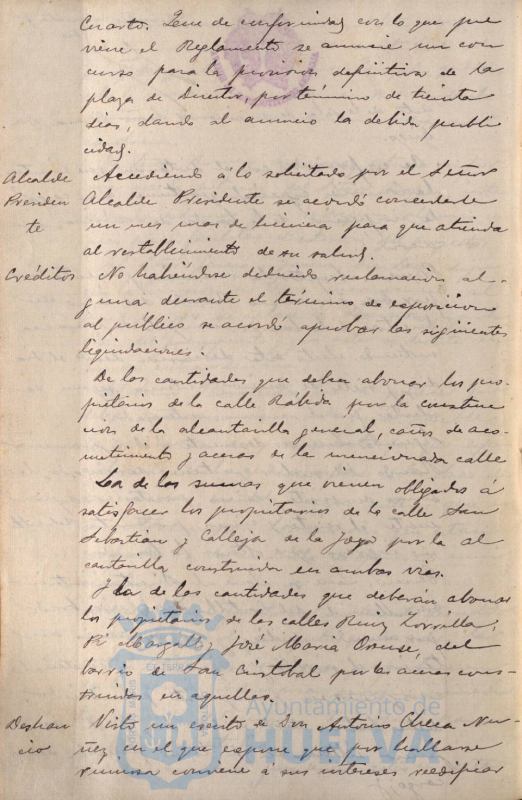 Cuarto. Que de conformidad con lo que pre
viene el Reglamento se anuncie un con
curso para la provision definitiva de la
plaza de Director, por término de treinta
dias, dando al anuncio la debida publi
cidad.
Alcalde
Presiden
te
Accediendo á lo solicitado por el Señor
Alcalde Presidente se acordó concederle
un mes mas de licencia para que atienda
al restablecimiento de su salud.
Créditos
No habiéndose deducido reclamacion al-
guna durante el término de exposicion
al público se acordó aprobar las siguientes
liquidaciones.
De las cantidades que deben abonar los pro-
pietarios de la calle Rábida por la construc
cion de la alcantarilla general, caños de aco-
metimiento y aceras de la mencionada calle
La de las sumas que vienen obligados á
satisfacer los propietarios de la calle San
Sebastian y Calleja de la por la al
cantarilla construida en ambas vias.
Y la de las cantidades que deberán abonar
los propietarios de las calles Ruiz Zorrilla,
Pi Margall y José Maria Orense, del
barrio de San Cristobal por las aceras cons-
truidas en aquellas.
Deshau
cio
Visto un escrito de Don Antonio Checa Nu-
ñez en el que expone que por hallarse
ruinosa conviene á sus intereses reedificar
Ayuntamiento de
HUELVA